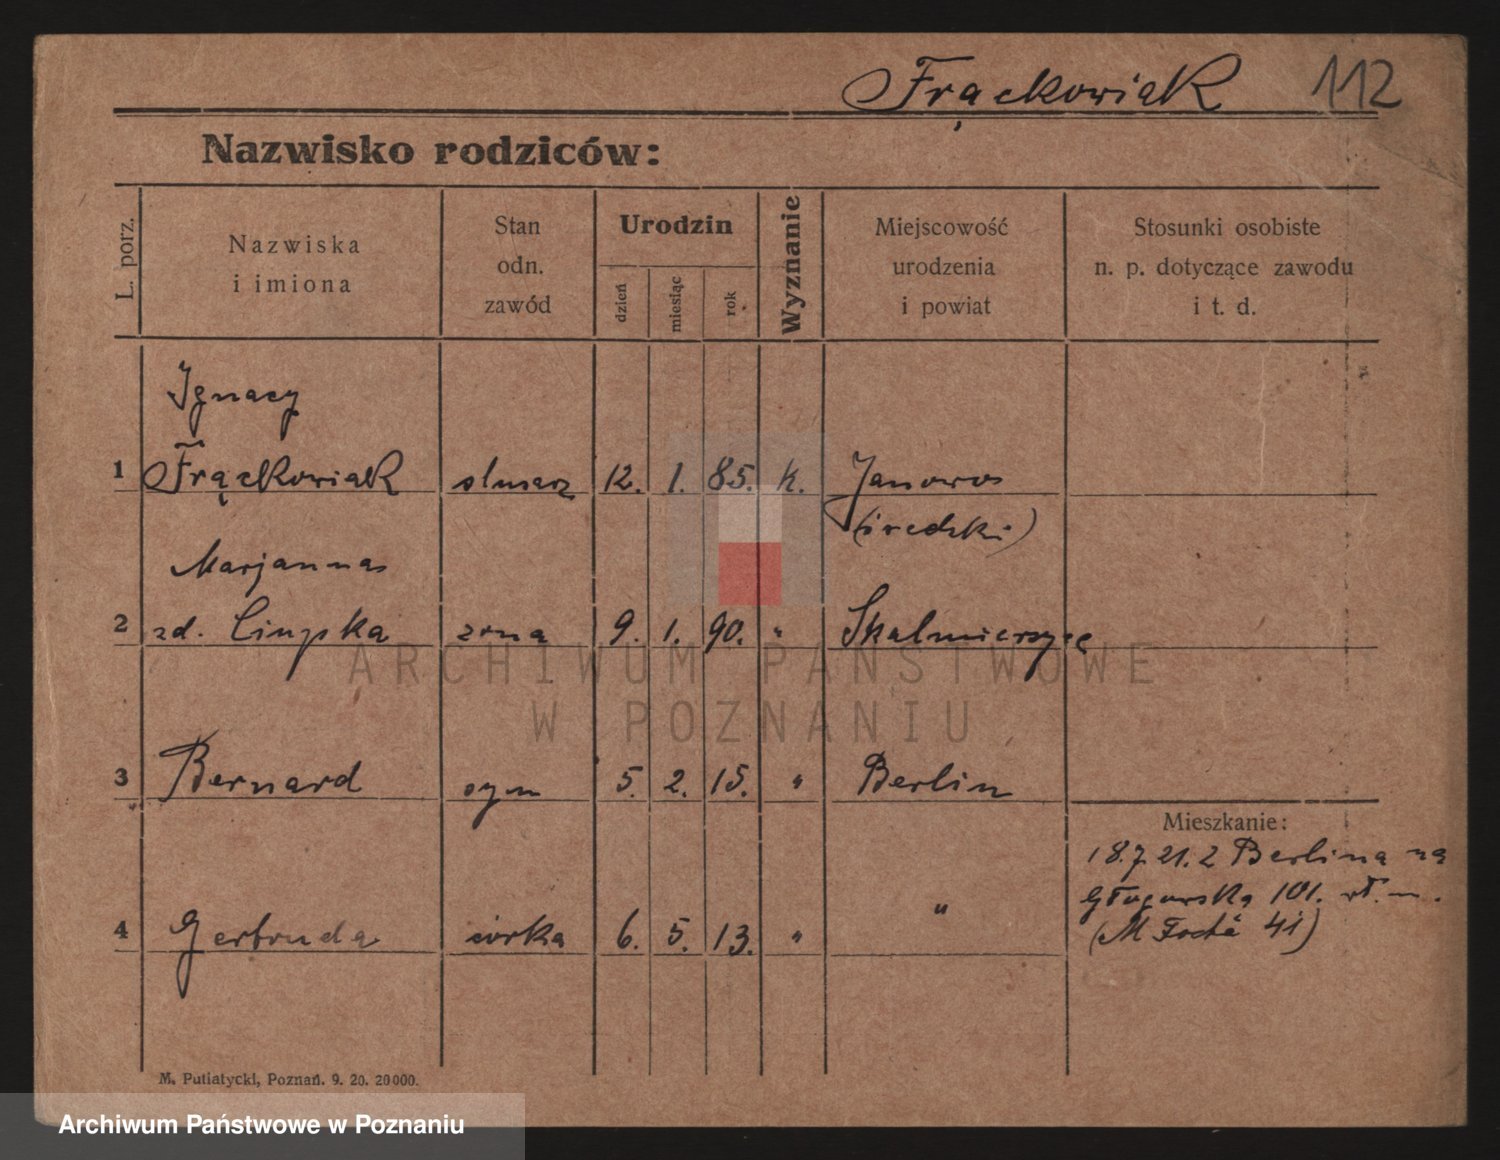 Frąckowiak 112
Nazwisko rodziców:
L. porz.
Nazwiska
i imiona
Stan
odn.
zawód
Urodzin
dzień
miesiąc
rok
Wyznanie
Miejscowość
urodzenia
i powiat
Stosunki osobiste
n. p. dotyczące zawodu
i t. d.
Ignacy
1 Frąckowiak 12. 1. 85. k. Janowo
(średzki)
Marjanna
2 zd. żona 9. 1. 90. " Skalmierzyce
3 Bernard syn 5. 2. 15. " Berlin
Mieszkanie:
18.7.21. z Berlina na
Głogowska 101.
4 Gertruda córka 6. 5. 13. " "
(M Focha 41)
M. Putiatycki, Poznań. 9. 20. 20000.
ARCHIWUM PAŃSTWOWE
W POZNANIU
Archiwum Państwowe w Poznaniu